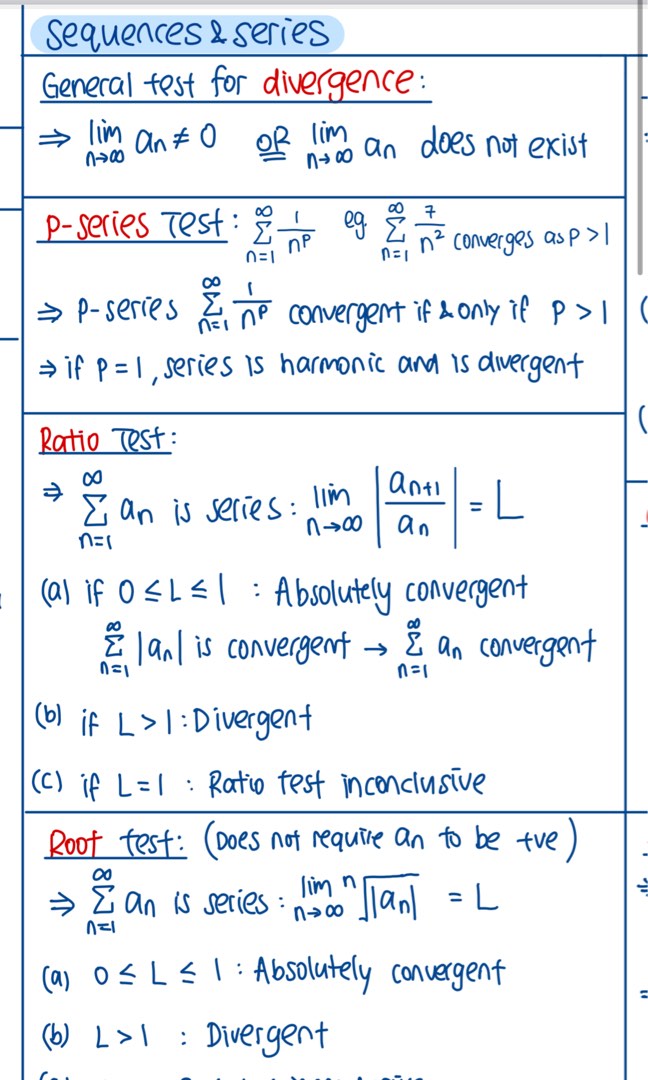 Sequences & series
General test for divergence:
⇒ lim n→∞ an ≠ 0 OR lim n→∞ an does not exist
P-series Test: ∞ Σ n=1 1/n^p eg ∞ Σ n=1 7/n² converges as p > 1
⇒ P-series ∞ Σ n=1 1/n^p convergent if & only if P > 1
⇒ if P = 1, series is harmonic and is divergent
Ratio Test:
⇒ ∞ Σ n=1 an is series: lim n→∞ |an+1/an| = L
(a) if 0 ≤ L ≤ 1 : Absolutely convergent
∞ Σ n=1 |an| is convergent → ∞ Σ n=1 an convergent
(b) if L > 1 : Divergent
(c) if L = 1 : Ratio test inconclusive
Root test: (Does not require an to be +ve)
⇒ ∞ Σ n=1 an is series: lim n→∞ n√|an| = L
(a) 0 ≤ L ≤ 1 : Absolutely convergent
(b) L > 1 : Divergent